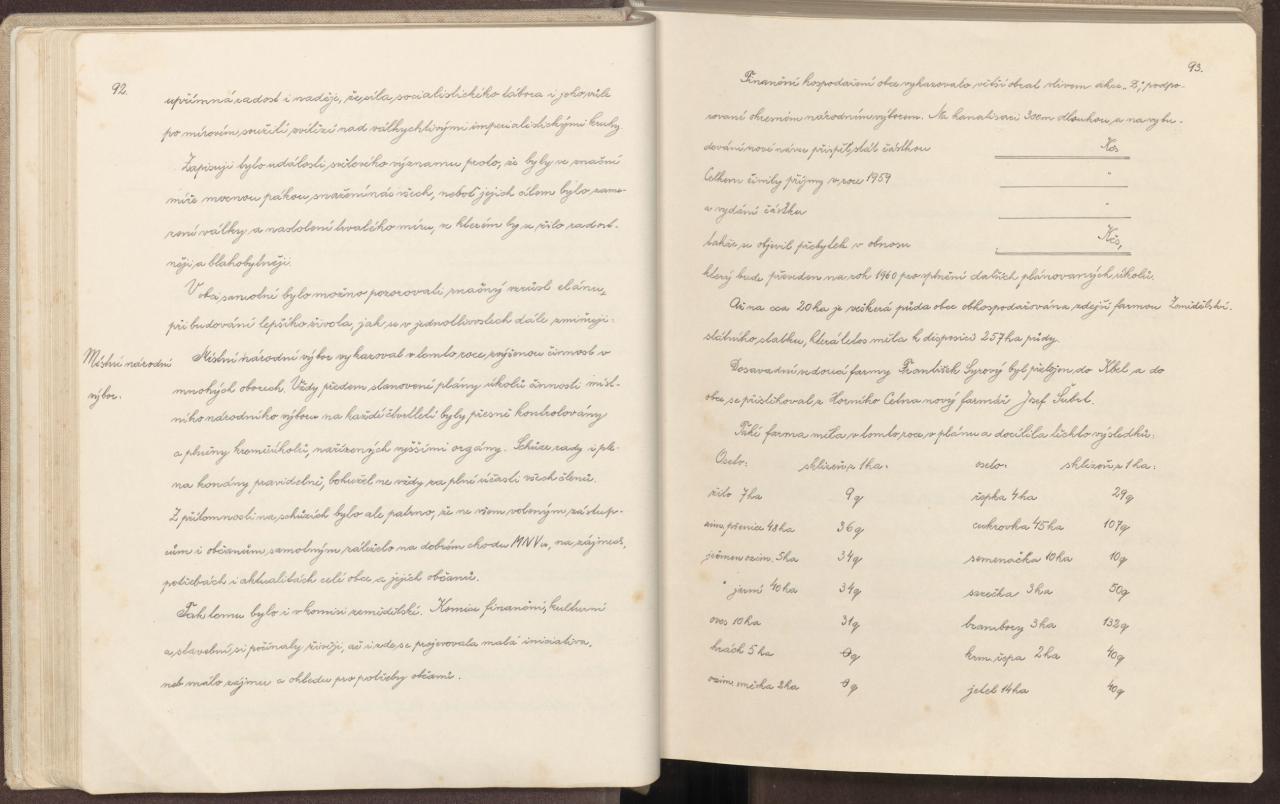 92.
upřímná radost i naděje, že síla socialistického tábora i jeho vůle
po mírovém soužití zvítězí nad válkychtivými imperialistickými kruhy.
Zapisuji tyto události světového významu proto, že byly ve značné
míře mocnou pákou, snažení nás všech, neboť jejich cílem bylo zame-
zení války a nastolení trvalého míru, ve kterém by se žilo radost-
něji a blahobytněji.
V obci samotné bylo možno pozorovati značný vzrůst elánu,
při budování lepšího života, jak se v jednotlivostech dále zmiňuji.
Místní národní
výbor.
Místní národní výbor vykazoval v tomto roce zvýšenou činnost v
mnohých oborech. Vždy předem stanovené plány úkolů činnosti míst-
ního národního výboru na každé čtvrtletí byly přesně kontrolovány
a plněny kromě úkolů, nařízených vyššími orgány. Schůze rady i plé-
na konány pravidelně, bohužel ne vždy za plné účasti všech členů.
Z přítomnosti na schůzích bylo ale patrno, že ne všem voleným zástup-
cům i občanům samotným záleželo na dobrém chodu MNV-u, na zájmech,
potřebách i aktualitách celé obce a jejích občanů.
Tak tomu bylo i v komisi zemědělské. Komise finanční, kulturní
a stavební, si počínaly živěji, ač i zde se projevovala malá iniciativa,
neb málo zájmu a ohledu pro potřeby občanů.
93.
Finanční hospodaření obce vykazovalo větší obrat vlivem akce „Z", podpo-
rované okresním národním výborem. Na kanalisaci 300m dlouhou, a na vybu-
dování nové návsi přispěl stát částkou Kčs
Celkem činily příjmy v roce 1959 "
a vydání částku "
takže se objevil přebytek v obnosu Kčs,
který bude převeden na rok 1960 pro splnění dalších plánovaných úkolů.
Až na cca 20 ha je veškerá půda obce obhospodařována zdejší farmou Zemědělství
státního statku, která letos měla k disposici 257 ha půdy.
Dosavadní vedoucí farmy František Syrový byl přeložen do Kbel a do
obce se přistěhoval z Horního Cetna nový farmář Josef Šubrt.
Také farma měla v tomto roce v plánu a docílila těchto výsledků:
Oseto: sklizeň z 1 ha: oseto: sklizeň z 1 ha:
žito 7 ha 9 q řepka 4 ha 29 q
ozim. pšenice 48 ha 36 q cukrovka 45 ha 107 q
ječmen ozim. 5 ha 34 q semenačka 10 ha 10 q
" jarní 40 ha 34 q sazečka 3 ha 50 q
oves 10 ha 31 q brambory 3 ha 132 q
hrách 5 ha 0 q krm. řepa 2 ha 40 q
ozim. směska 2 ha 0 q jetel 14 ha 40 q